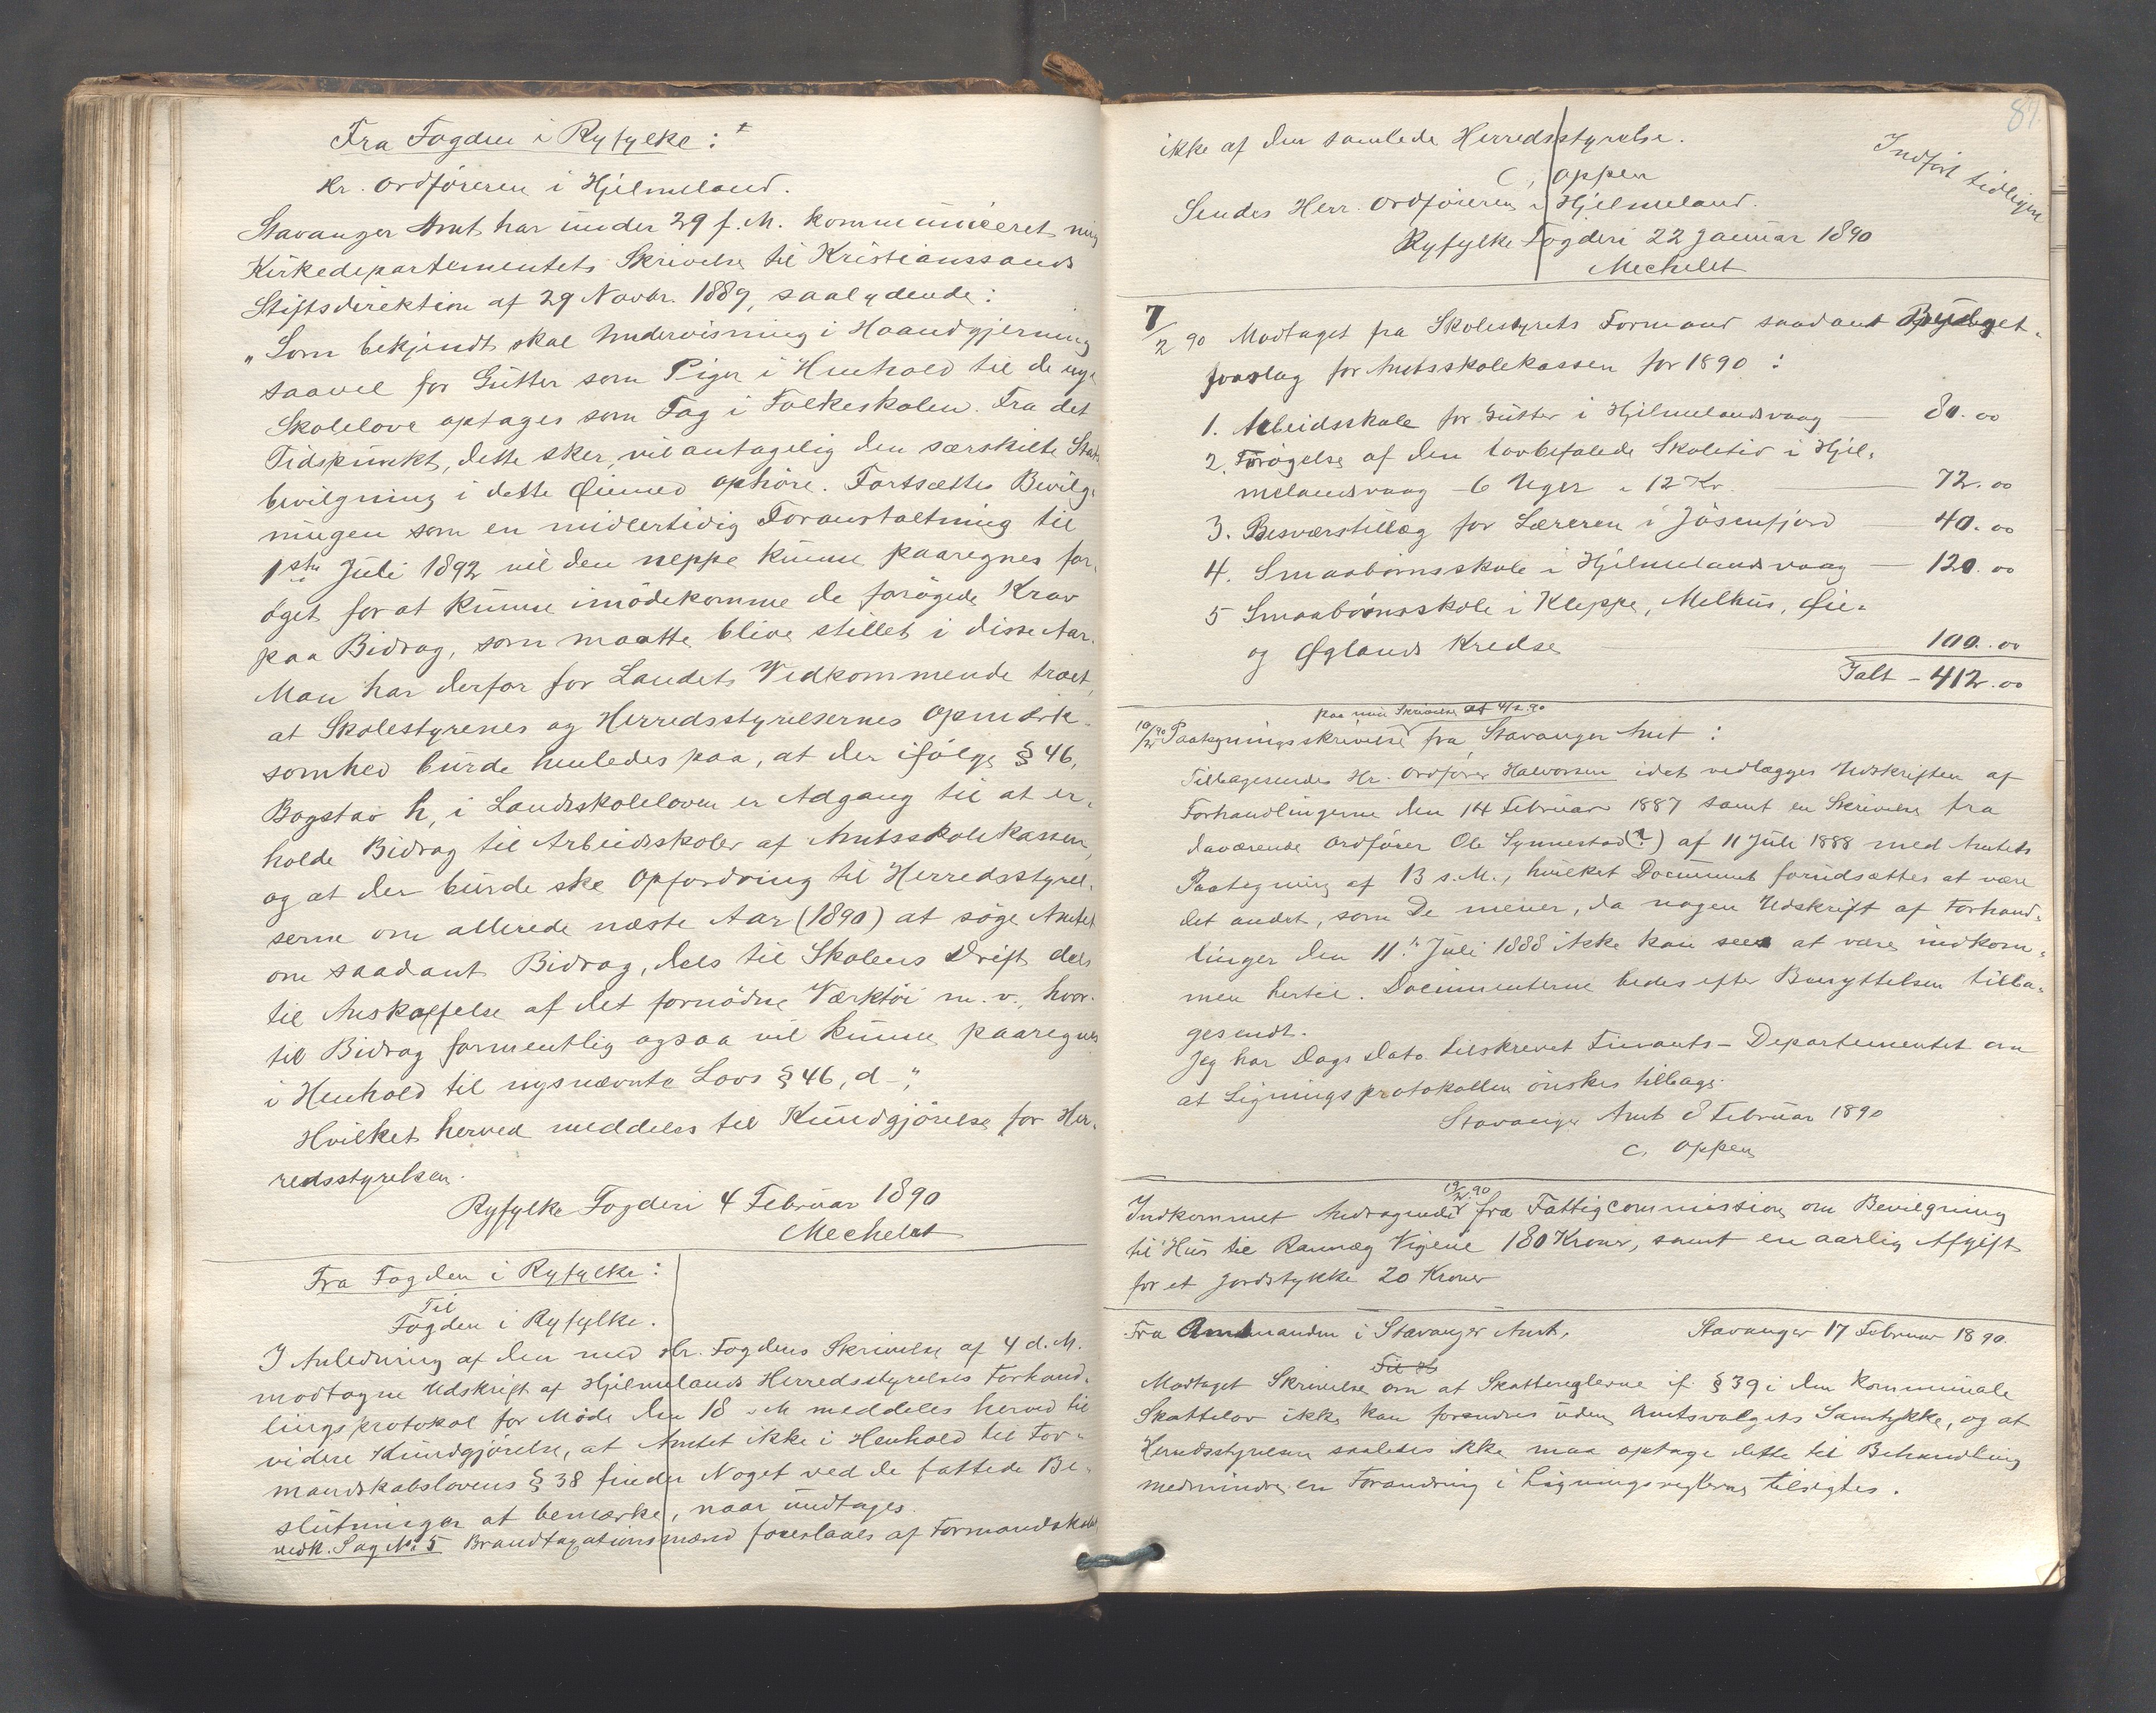 Fra Fogden i Ryfylke:
Hr. Ordföreren i Hjelmeland.
Stavanger Amt har under 29 f. M. kommuniceret mig
Kirkedepartementets Skrivelse til Kristianssands
Stiftsdirektion af 29 Novbr. 1889, saalydende:
"Som bekjendt skal Undervisning i Haandgjerning
saavel for Gutter som Piger i Henhold til de nye
Skolelove optages som Fag i Folkeskolen. Fra det
Tidspunkt, dette sker, vil antagelig den særskilte Stats
bevilgning i dette Øiemed ophöre. Fortsættes Bevilg-
ningen som en midlertidig Foranstaltning til
1ste Juli 1892 vil den neppe kunne paaregnes for-
öget for at kunne imödekomme de forögede Krav
paa Bidrag, som maatte blive stillet i disse Aar.
Man har derfor for Landets Vedkommende troet,
at Skolestyrenes og Herredsstyrelsernes Opmærk-
somhed burde henledes paa, at der ifölge § 46,
Bogstav h, i Landsskoleloven er Adgang til at er-
holde Bidrag til Arbeidsskoler af Amtsskolekassen,
og at der burde ske Opfordring til Herredsstyrel-
serne om allerede næste Aar (1890) at söge Amtet
om saadant Bidrag, dels til Skolens Drift dels
til Anskaffelse af det fornödne Værktöi m. v., hvor-
til Bidrag formentlig ogsaa vil kunne paaregnes
i Henhold til nysnævnte Lovs § 46, d -"
Hvilket herved meddeles til Kundgjörelse for Her-
redsstyrelsen.
Ryfylke Fogderi 4 Februar 1890
Mechelet
Fra Fogden i Ryfylke:
Til
Fogden i Ryfylke.
I Anledning af den med Hr. Fogdens Skrivelse af 4 d. M.
modtagne Udskrift af Hjelmelands Herredsstyrelses Forhand-
lingsprotokol for Möde den 18 s M meddeles herved til
videre Kundgjörelse, at Amtet ikke i Henhold til For-
mandskabslovens § 38 finder Noget ved de fattede Be-
slutninger at bemærke, naar undtages.
vedk. Sag No. 5 Brandtaxationsmænd foreslaaes af Formandskabet
87
ikke af den samlede Herredsstyrelse.
C. Oppen
Indfört tidligere
Sendes Herr. Ordföreren i Hjelmeland.
Ryfylke Fogderi 22 Januar 1890
Mechelet
7/2 90 Modtaget fra Skolestyrets Formand saadant Budget-
forslag for Amtsskolekassen for 1890:
1. Arbeidsskole for Gutter i Hjelmelandsvaag — 80.00
2. Forögelse af den lovbefalede Skoletid i Hjel-
melandsvaag - 6 Uger a 12 Kr. — 72.00
3. Besværstillæg for Læreren i Jösenfjord 40.00
4. Smaabörnsskole i Hjelmelandsvaag — 120.00
5 Smaabörnsskole i Kleppe, Melhus, Øie-
og Øglands Kredse — 100.00
Ialt - 412.00
paa min Skrivelse af 4/2 90
10/2 90 Paategningsskrivelse fra Stavanger Amt:
Tilbagesendes Hr. Ordförer Halvorsen idet vedlægges Udskriften af
Forhandlingerne den 14 Februar 1887 samt en Skrivelse fra
daværende Ordförer Ole Synnestad(?) af 11 Juli 1888 med Amtets
Paategning af 13 s. M., hvilket Document forudsættes at være
det andet, som De mener, da nogen Udskrift af Forhand-
linger den 11te Juli 1888 ikke kan sees at være indkom-
men hertil. Documenterne bedes efter Benyttelsen tilba-
gesendt.
Jeg har Dags Dato tilskrevet Finants-Departementet om
at Ligningsprotokollen önskes tilbage.
Stavanger Amt 8 Februar 1890
C. Oppen
19/2 90
Indkommet Andragende fra Fattigcommission om Bevilgning
til Hus til Rannæg Vigene 180 Kroner, samt en aarlig Afgift
for et Jordstykke 20 Kroner
Fra Amtmanden i Stavanger Amt. Stavanger 17 Februar 1890.
Modtaget Skrivelse om at Skattereglerne if. § 39 i den kommunale
Skattelov ikke kan forandres uden Amtsvalgets Samtykke, og at
Herredsstyrelsen saaledes ikke maa optage dette til Behandling
medmindre en Forandring i Ligningsreglerne tilsigtes.